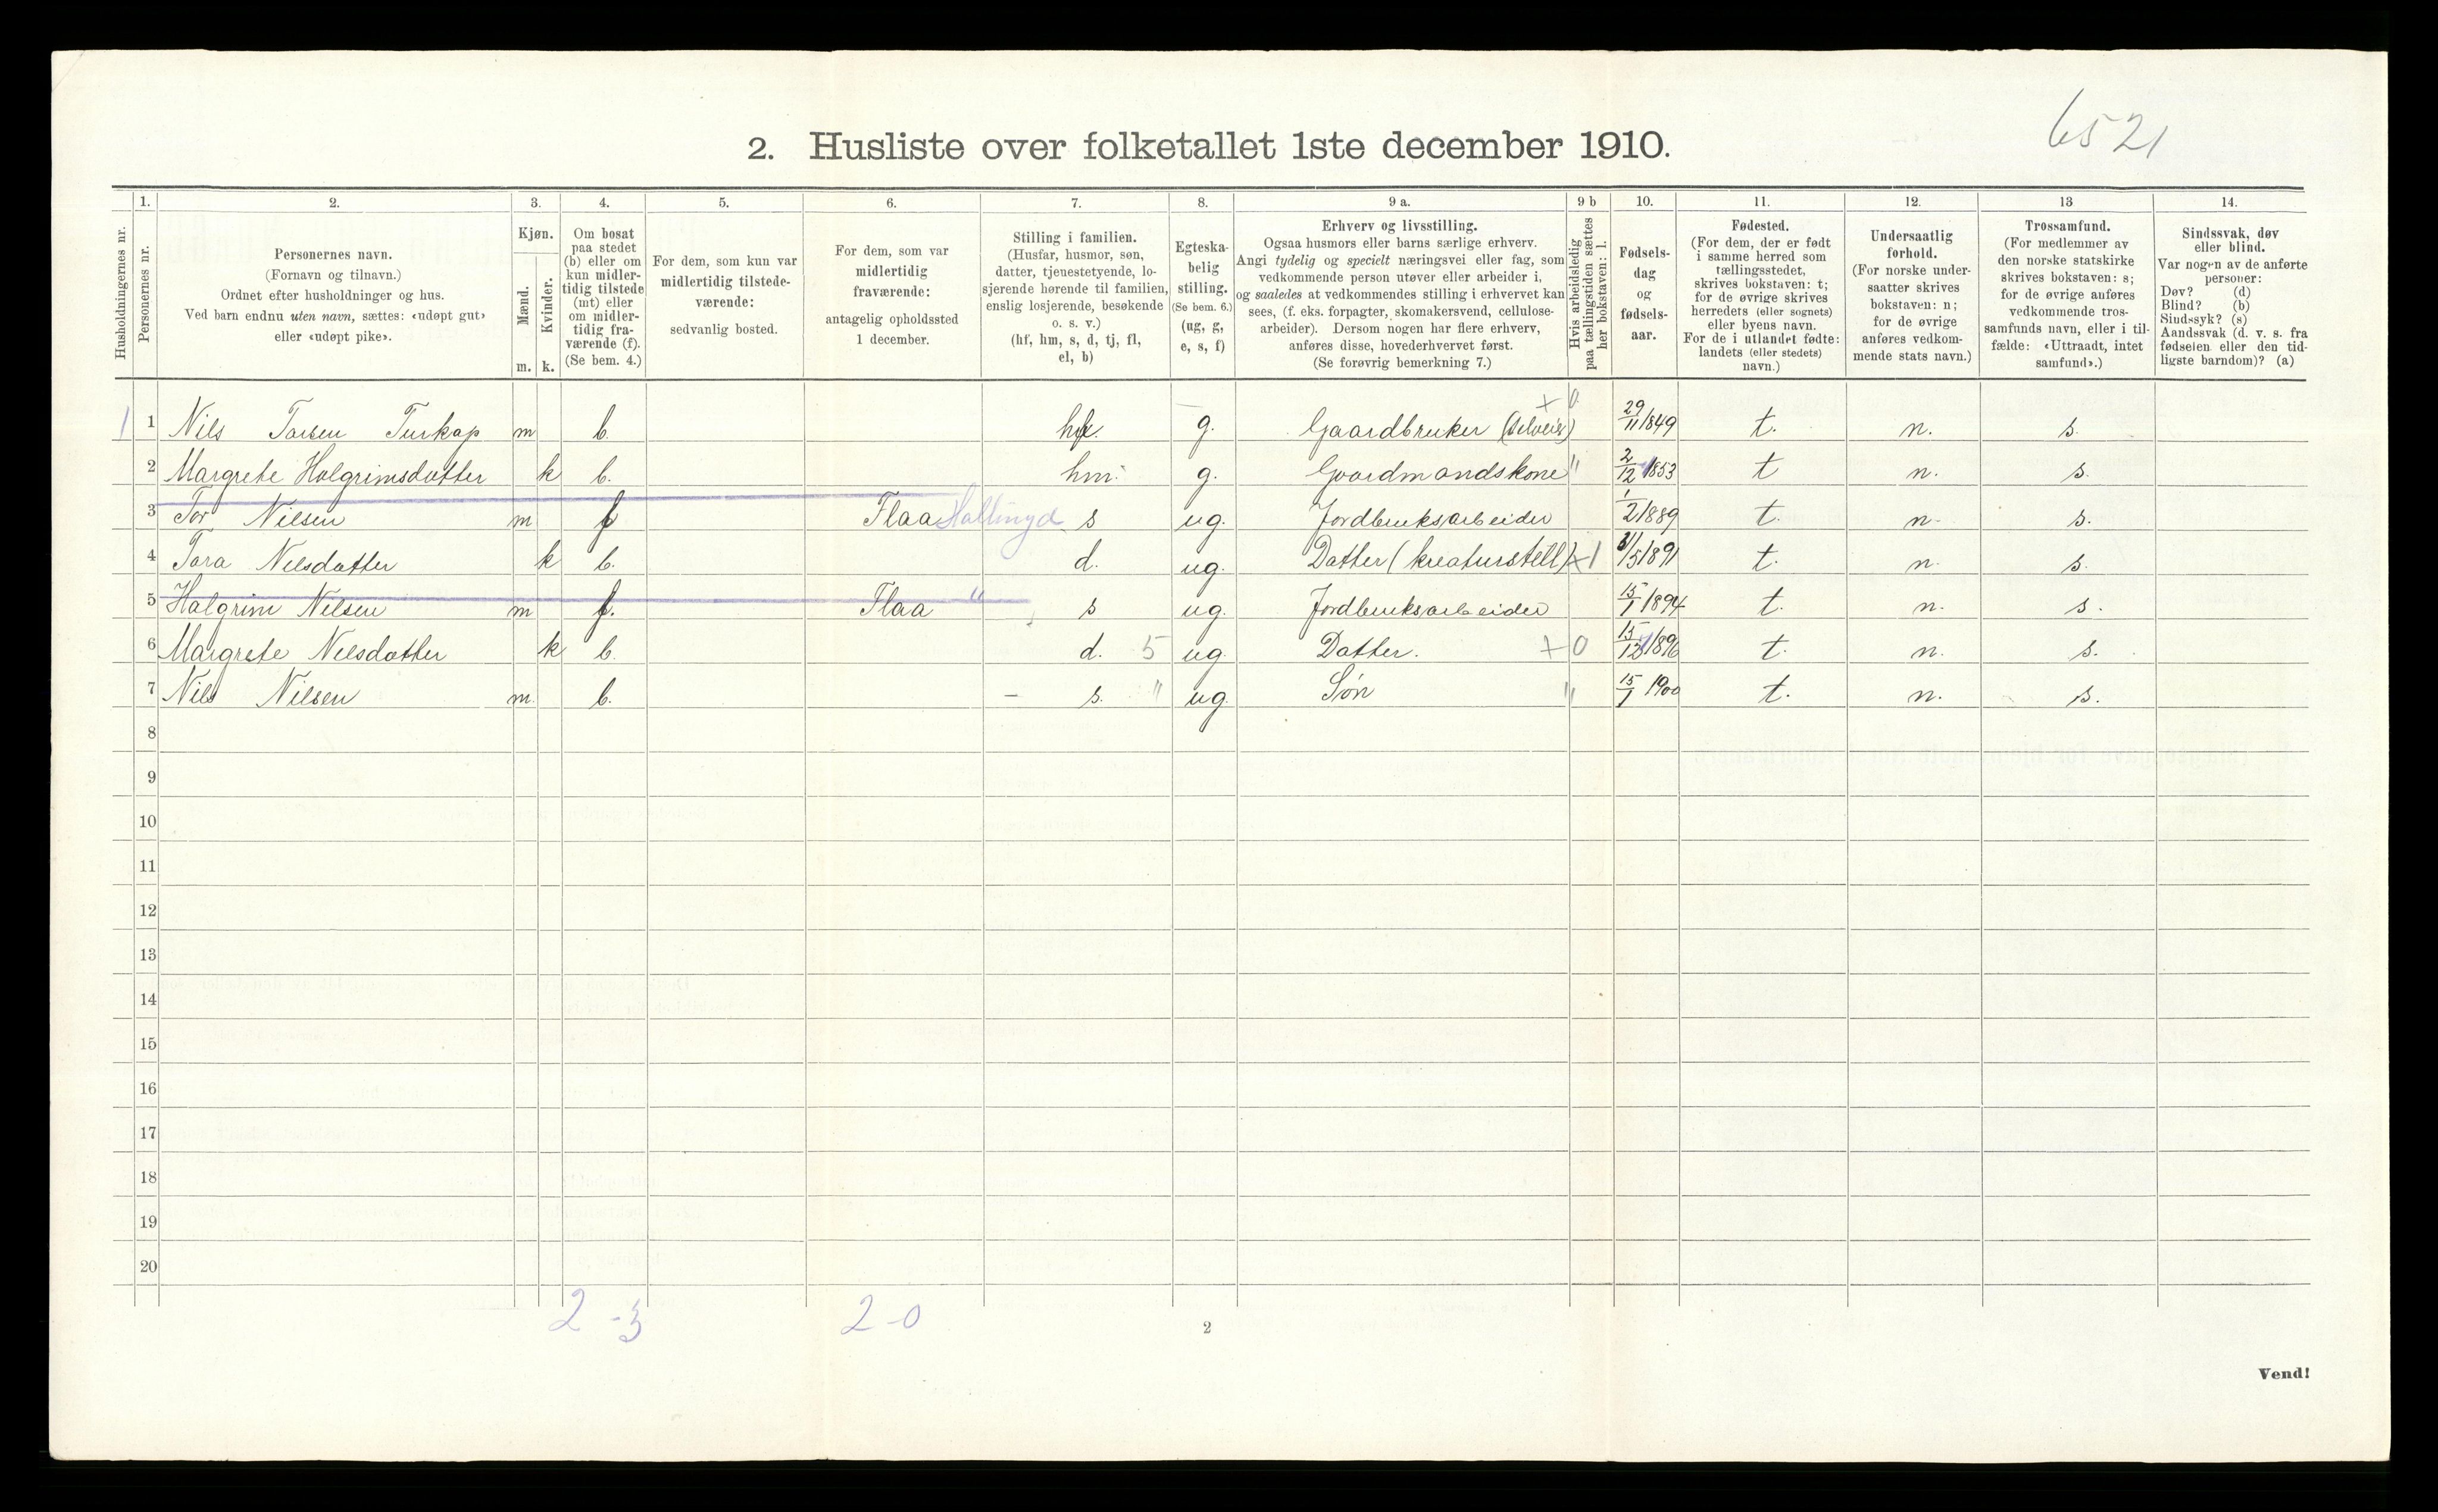 6521
2. Husliste over folketallet 1ste december 1910.
1. 2. 3. 4. 5. 6. 7. 8. 9 a. 9 b 10. 11. 12. 13 14.
Husholdningernes nr.
Personernes nr.
Personernes navn.
(Fornavn og tilnavn.)
Ordnet efter husholdninger og hus.
Ved barn endnu uten navn, sættes: «udøpt gut»
eller «udøpt pike».
Kjøn.
Mænd.
Kvinder.
m. k.
Om bosat
paa stedet
(b) eller om
kun midler-
tidig tilstede
(mt) eller
om midler-
tidig fra-
værende (f).
(Se bem. 4.)
For dem, som kun var
midlertidig tilstede-
værende:
sedvanlig bosted.
For dem, som var
midlertidig
fraværende:
antagelig opholdssted
1 december.
Stilling i familien.
(Husfar, husmor, søn,
datter, tjenestetyende, lo-
sjerende hørende til familien,
enslig losjerende, besøkende
o. s. v.)
(hf, hm, s, d, tj, fl,
el, b)
Egteska-
belig
stilling.
(Se bem. 6.)
(ug, g,
e, s, f)
Erhverv og livsstilling.
Ogsaa husmors eller barns særlige erhverv.
Angi tydelig og specielt næringsvei eller fag, som
vedkommende person utøver eller arbeider i,
og saaledes at vedkommendes stilling i erhvervet kan
sees, (f. eks. forpagter, skomakersvend, cellulose-
arbeider). Dersom nogen har flere erhverv,
anføres disse, hovederhvervet først.
(Se forøvrig bemerkning 7.)
Hvis arbeidsledig
paa tællingstiden sættes
her bokstaven: l.
Fødsels-
dag
og
fødsels-
aar.
Fødested.
(For dem, der er født
i samme herred som
tællingsstedet,
skrives bokstaven: t;
for de øvrige skrives
herredets (eller sognets)
eller byens navn.
For de i utlandet fødte:
landets (eller stedets)
navn.)
Undersaatlig
forhold.
(For norske under-
saatter skrives
bokstaven: n;
for de øvrige
anføres vedkom-
mende stats navn.)
Trossamfund.
(For medlemmer av
den norske statskirke
skrives bokstaven: s;
for de øvrige anføres
vedkommende tros-
samfunds navn, eller i til-
fælde: «Uttraadt, intet
samfund».)
Sindssvak, døv
eller blind.
Var nogen av de anførte
personer:
Døv? (d)
Blind? (b)
Sindssyk? (s)
Aandssvak (d. v. s. fra
fødselen eller den tid-
ligste barndom)? (a)
1 1 Nils Torsen Turkop m b. hf. g. Gaardbruker (Selveier) + 0 29/11 1849 t. n. s.
2 Margrete Halgrimsdatter k b. hm. g. Gaardmandskone " 2/12 1853 t n. s.
3 Tor Nilsen m f Flaa Hallingd s ug. Jordbruksarbeider 1/2 1889 t. n. s.
4 Tora Nilsdatter k b. d. ug. Datter (kreaturstell) + 1 /5 1891 t. n. s.
5 Halgrim Nilsen m f. Flaa " s ug. Jordbruksarbeider 15/1 1894 t. n. s.
6 Margrete Nilsdatter k b. d. 5 ug. Datter. + 0 15/12 1896 t. n. s.
7 Nils Nilsen m. b. – s. " ug. Søn " 15/1 1900 t. n. s.
8
9
10
11
12
13
14
15
16
17
18
19
20
2 - 3 2 - 0
2
Vend!